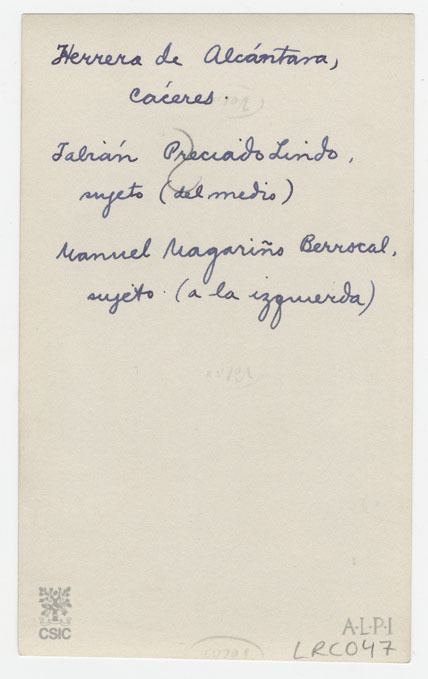 Herrera de Alcántara,
Cáceres.
Fabián Preciado Lindo,
sujeto (del medio)
Manuel Magariño Berrocal,
sujeto. (a la izquierda)
CSIC
A·L·P·I
LRC047